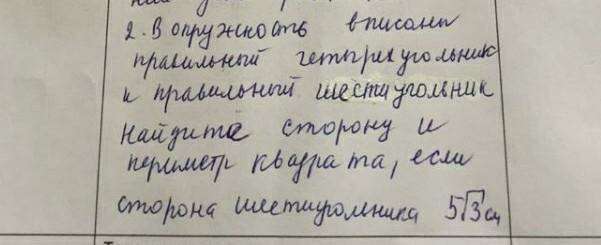 2. В опружность вписаны
правильный четырехугольник
и правильный шестиугольник
Найдите сторону и
периметр квадрата, если
сторона шестиугольника 5√3 см